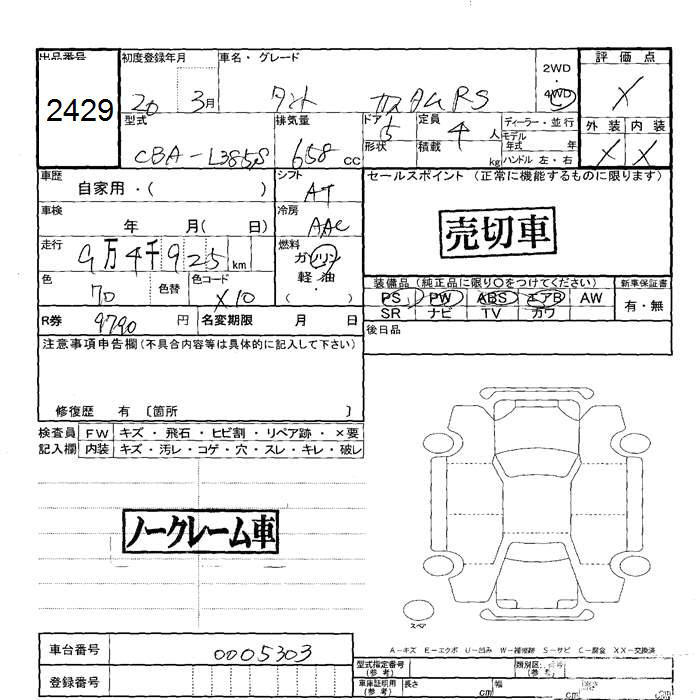 出品番号 初度登録年月 車名・グレード 2WD 評価点
2429 20 3月 タント カスタムRS 4WD X
型式 排気量 ドア 定員 ディーラー・並行 外装 内装
CBA-L385S 658 cc 5 4 人 モデル年式 年 X X
形状 積載 kg ハンドル 左・右
車歴 自家用・( ) シフト AT セールスポイント (正常に機能するものに限ります)
車検 年 月( 日) 冷房 AAC
売切車
走行 9万4千925km 燃料 ガソリン
軽油
( )
色 70 色替 色コード X10
装備品 (純正品に限り○をつけてください) 新車保証書
PS PW ABS エアB AW 有・無
SR ナビ TV カワ
R券 9790 円 名変期限 月 日
後日品
注意事項申告欄(不具合内容等は具体的に記入して下さい)
修復歴 有 〔箇所 〕
検査員 FW キズ・飛石・ヒビ割・リペア跡・×要
記入欄 内装 キズ・汚レ・コゲ・穴・スレ・キレ・破レ
ノークレーム車
スペア
A-キズ E-エクボ U-凹み W-補修跡 S-サビ C-腐食 XX-交換済
車台番号 0005303
型式指定番号(参考) 類別区分番号
登録番号
車庫証明用(参考) 長さ cm 幅 cm 高さ cm